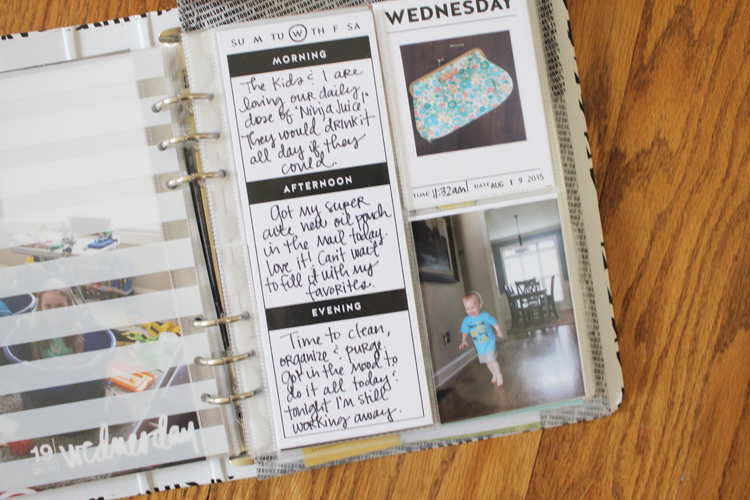 SU M TU W TH F SA
MORNING
The kids & I are
loving our daily
dose of "Ninja Juice".
They would drink it
all day if they
could.
AFTERNOON
Got my super
cute new oil pouch
in the mail today.
love it! Can't wait
to fill it with my
favorites.
EVENING
Time to clean,
organize & purge.
Got in the mood to
do it all today &
tonight I'm still
working away.
WEDNESDAY
TIME 11:32am DATE AUG 19 2015
19 wednesday